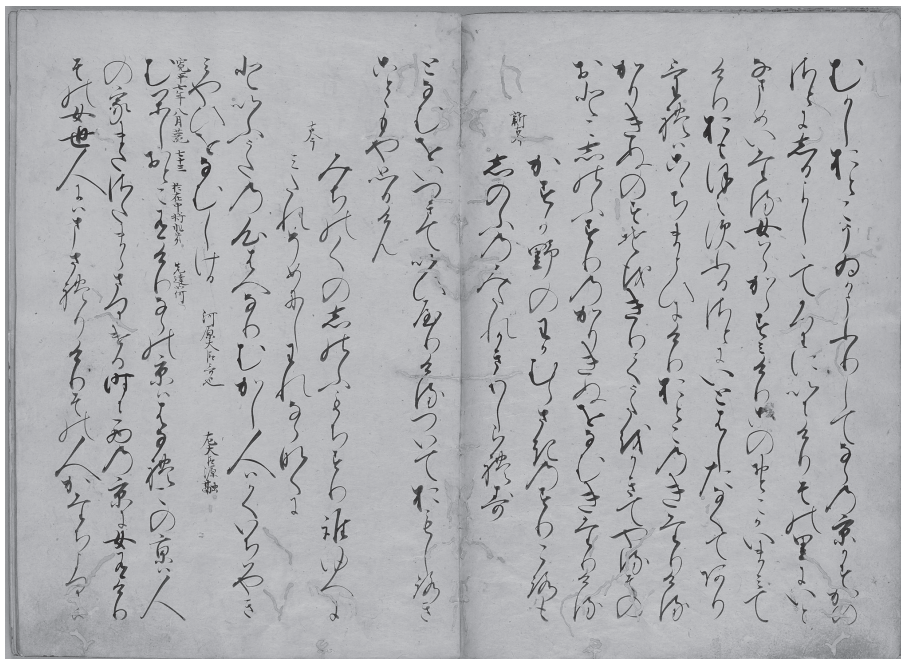 むかしおとこうゐかうふりしてならの京かすかの
佐とに志るよしゝてかりにいにけりその里にいと
なまめいたる女はらからすみけりこのおとこかいまみて
けりおもほえ須ふるさとにいとはしたなくてあり
介礼はこゝちまとひにけりおとこのきたりける
かりきぬのすそをきりてうたをかきてやるその
おとこ志のふすりのかりきぬをなむきたりける
新古今
かすか野のわかむらさきのすり衣
志のふのみたれかきりしられす
となむをいつきていひやりけるついておもしろき
ことゝもや思けん
みちのくの志のふもちすり誰ゆへに
古今
みたれそめにしわれならなくに
といふうたの心はへなりむかし人はかくいちはやき
みやひをなむしける 河原大臣哥也 左大臣源融
寛平七年八月薨 七十三
むかしおとこ有けりならの京ははなれこの京は人
の家またさたまらさりける時に西の京に女有けり
その女世人にはまされりけりその人かたちよりは